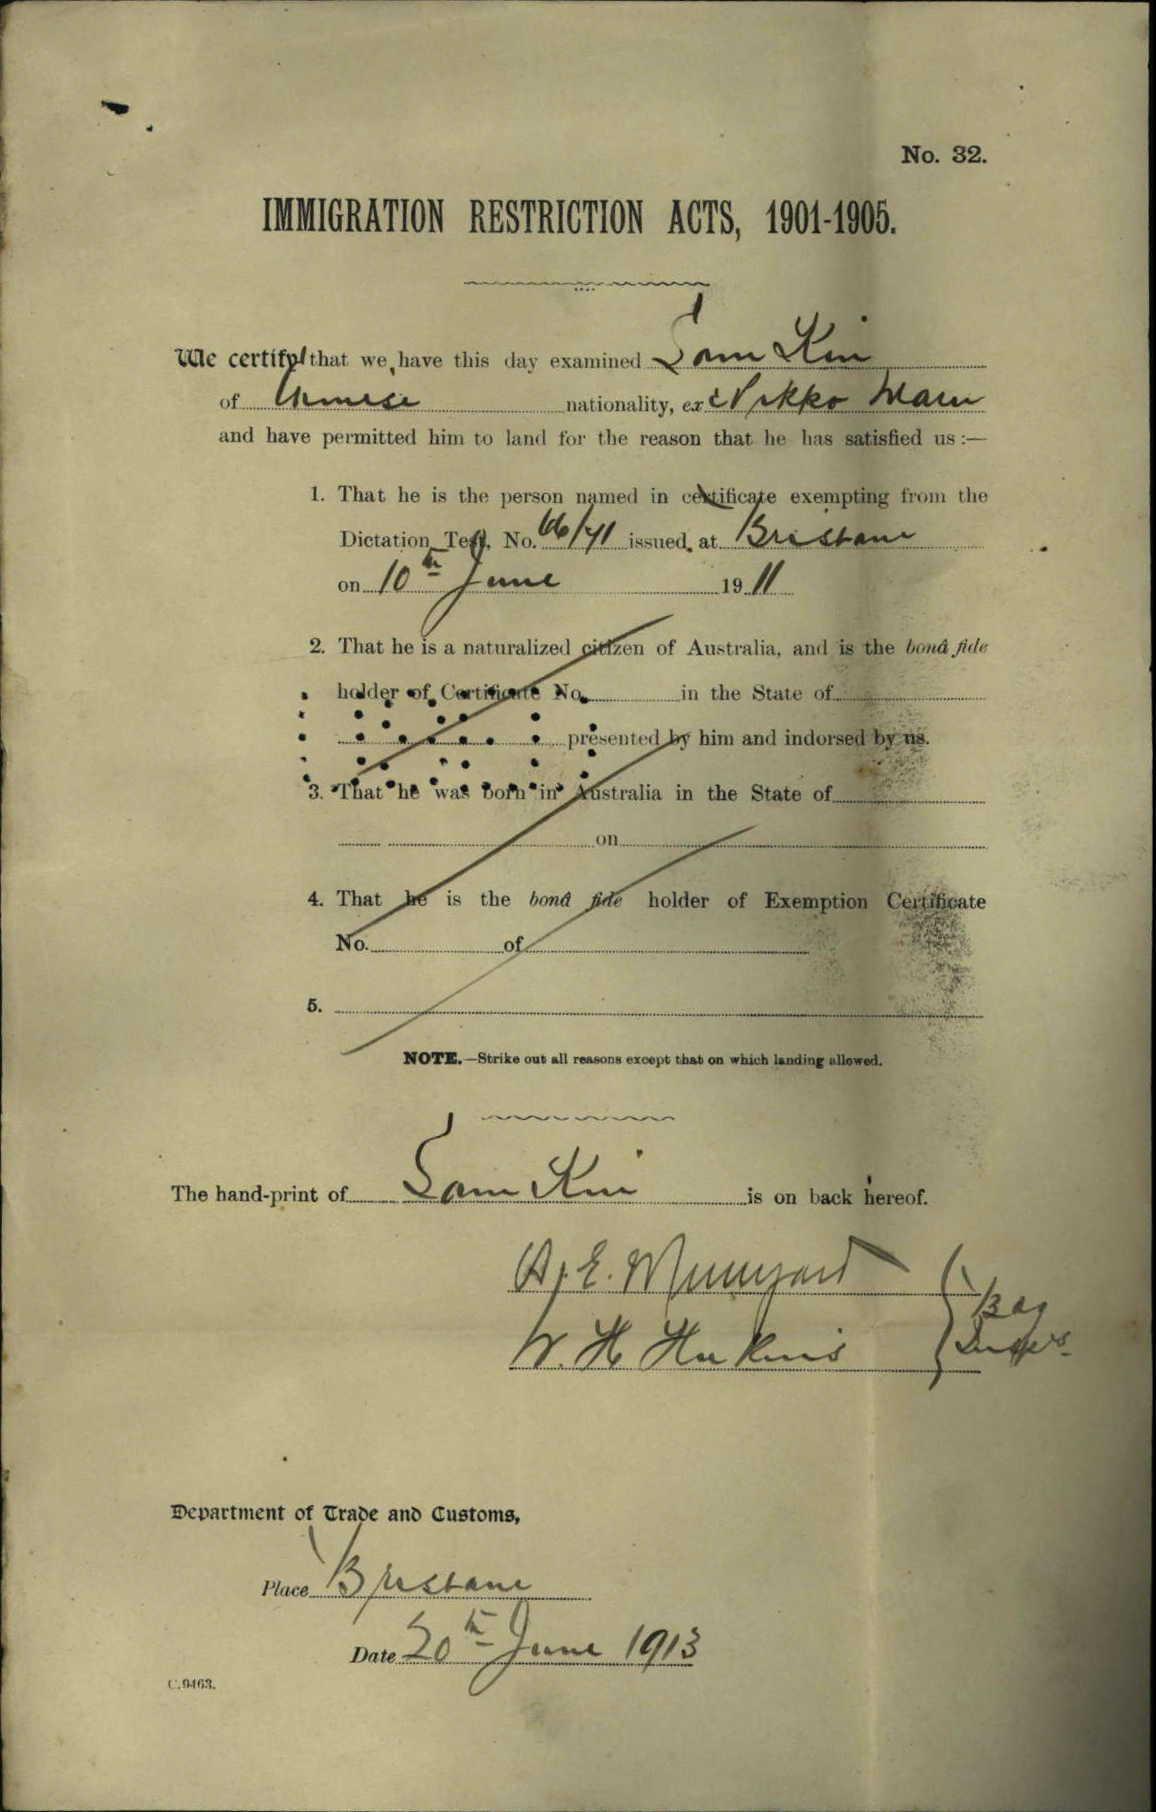 No. 32.
IMMIGRATION RESTRICTION ACTS, 1901-1905.
We certify that we have this day examined Sam Kin
of Chinese nationality, ex Nikko Maru
and have permitted him to land for the reason that he has satisfied us :—
1. That he is the person named in certificate exempting from the
Dictation Test, No. 66/41 issued at Brisbane
on 10th June 1911
2. That he is a naturalized citizen of Australia, and is the bonâ fide
holder of Certificate No. in the State of
presented by him and indorsed by us.
3. That he was born in Australia in the State of
on
4. That he is the bonâ fide holder of Exemption Certificate
No. of
5.
NOTE.—Strike out all reasons except that on which landing allowed.
The hand-print of Sam Kin is on back hereof.
E.
W. H.
Department of Trade and Customs,
Place Brisbane
Date 20th June 1913
C.9463.